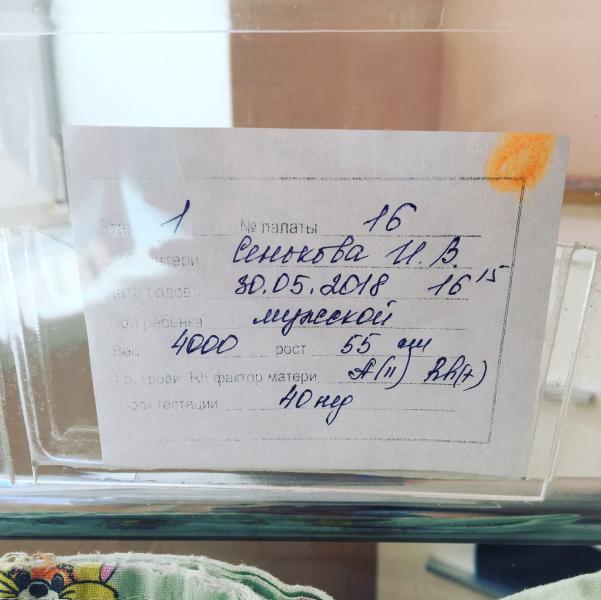 Этаж 1 № палаты 16
матери Сенькова И. В.
Дата родов 30.05.2018 16 15
Пол ребенка мужской
Вес 4000 рост 55 см
Гр. крови Rh фактор матери A(II) Rh(+)
Срок гестации 40 нед